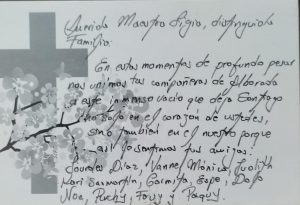 Querido Maestro Ligio, distinguida
Familia:
En estos momentos de profundo pesar
nos unimos tus compañeras de Alborada
a este inmenso vacío que deja Santiago
no solo en el corazón de ustedes,
sino también en el nuestro porque
así lo sentimos tus amigas.
Lourdes Díaz, Vanne, Mónica, Judith
Mari Sanmartín, Carmita, Espe, Dolo
Noa, Puchy, Fanny y Paquy.